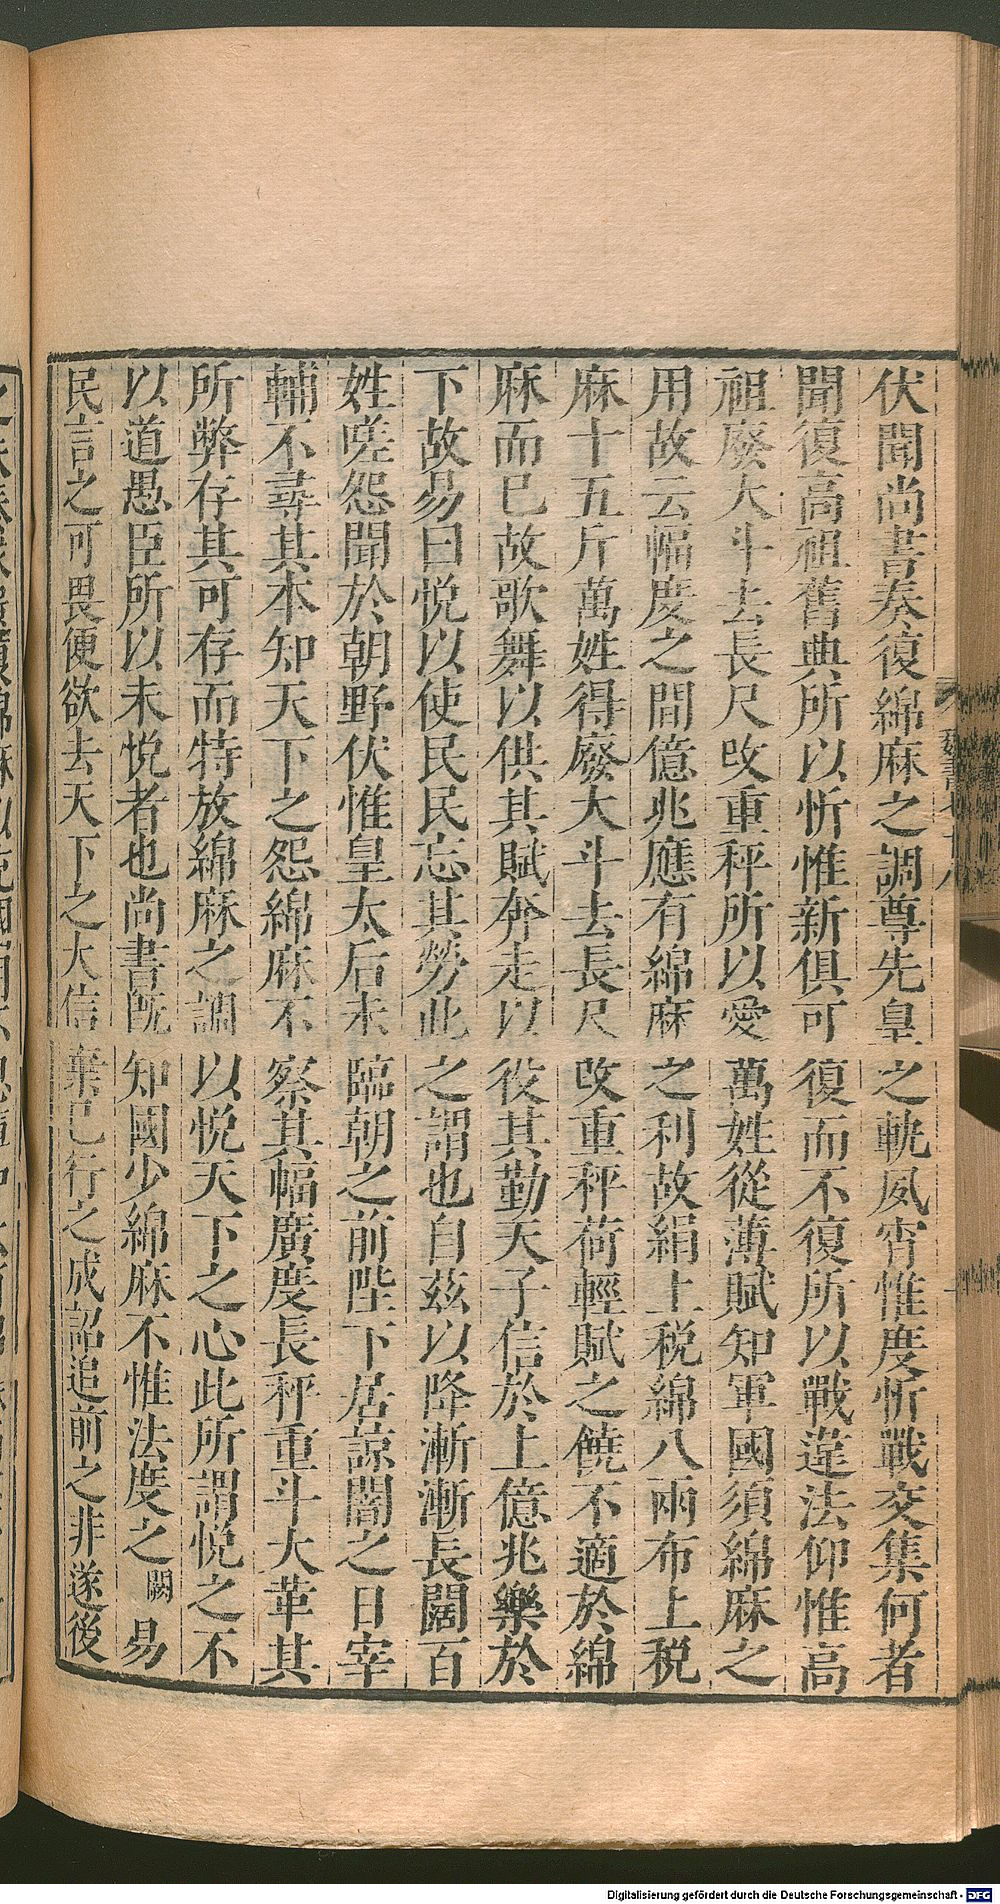 伏聞尚書奏復綿麻之調尊先皇之軌夙宵惟度忻戰交集何者
聞復高祖舊典所以忻惟新俱可復而不復所以戰違法仰惟高
祖廢大斗去長尺改重秤所以愛萬姓從薄賦知軍國須綿麻之
用故云幅度之間億兆應有綿麻之利故絹上稅綿八兩布上稅
麻十五斤萬姓得廢大斗去長尺改重秤荷輕賦之饒不適於綿
麻而已故歌舞以供其賦奔走以役其勤天子信於上億兆樂於
下故易曰悅以使民民忘其勞此之謂也自茲以降漸漸長闊百
姓嗟怨聞於朝野伏惟皇太后未臨朝之前陛下居諒闇之日宰
輔不尋其本知天下之怨綿麻不察其幅廣度長秤重斗大革其
所弊存其可存而特放綿麻之調以悅天下之心此所謂悅之不
以道愚臣所以未悅者也尚書既知國少綿麻不惟法度之闕易
民言之可畏便欲去天下之大信棄已行之成詔追前之非遂後
Digitalisierung gefördert durch die Deutsche Forschungsgemeinschaft - DFG